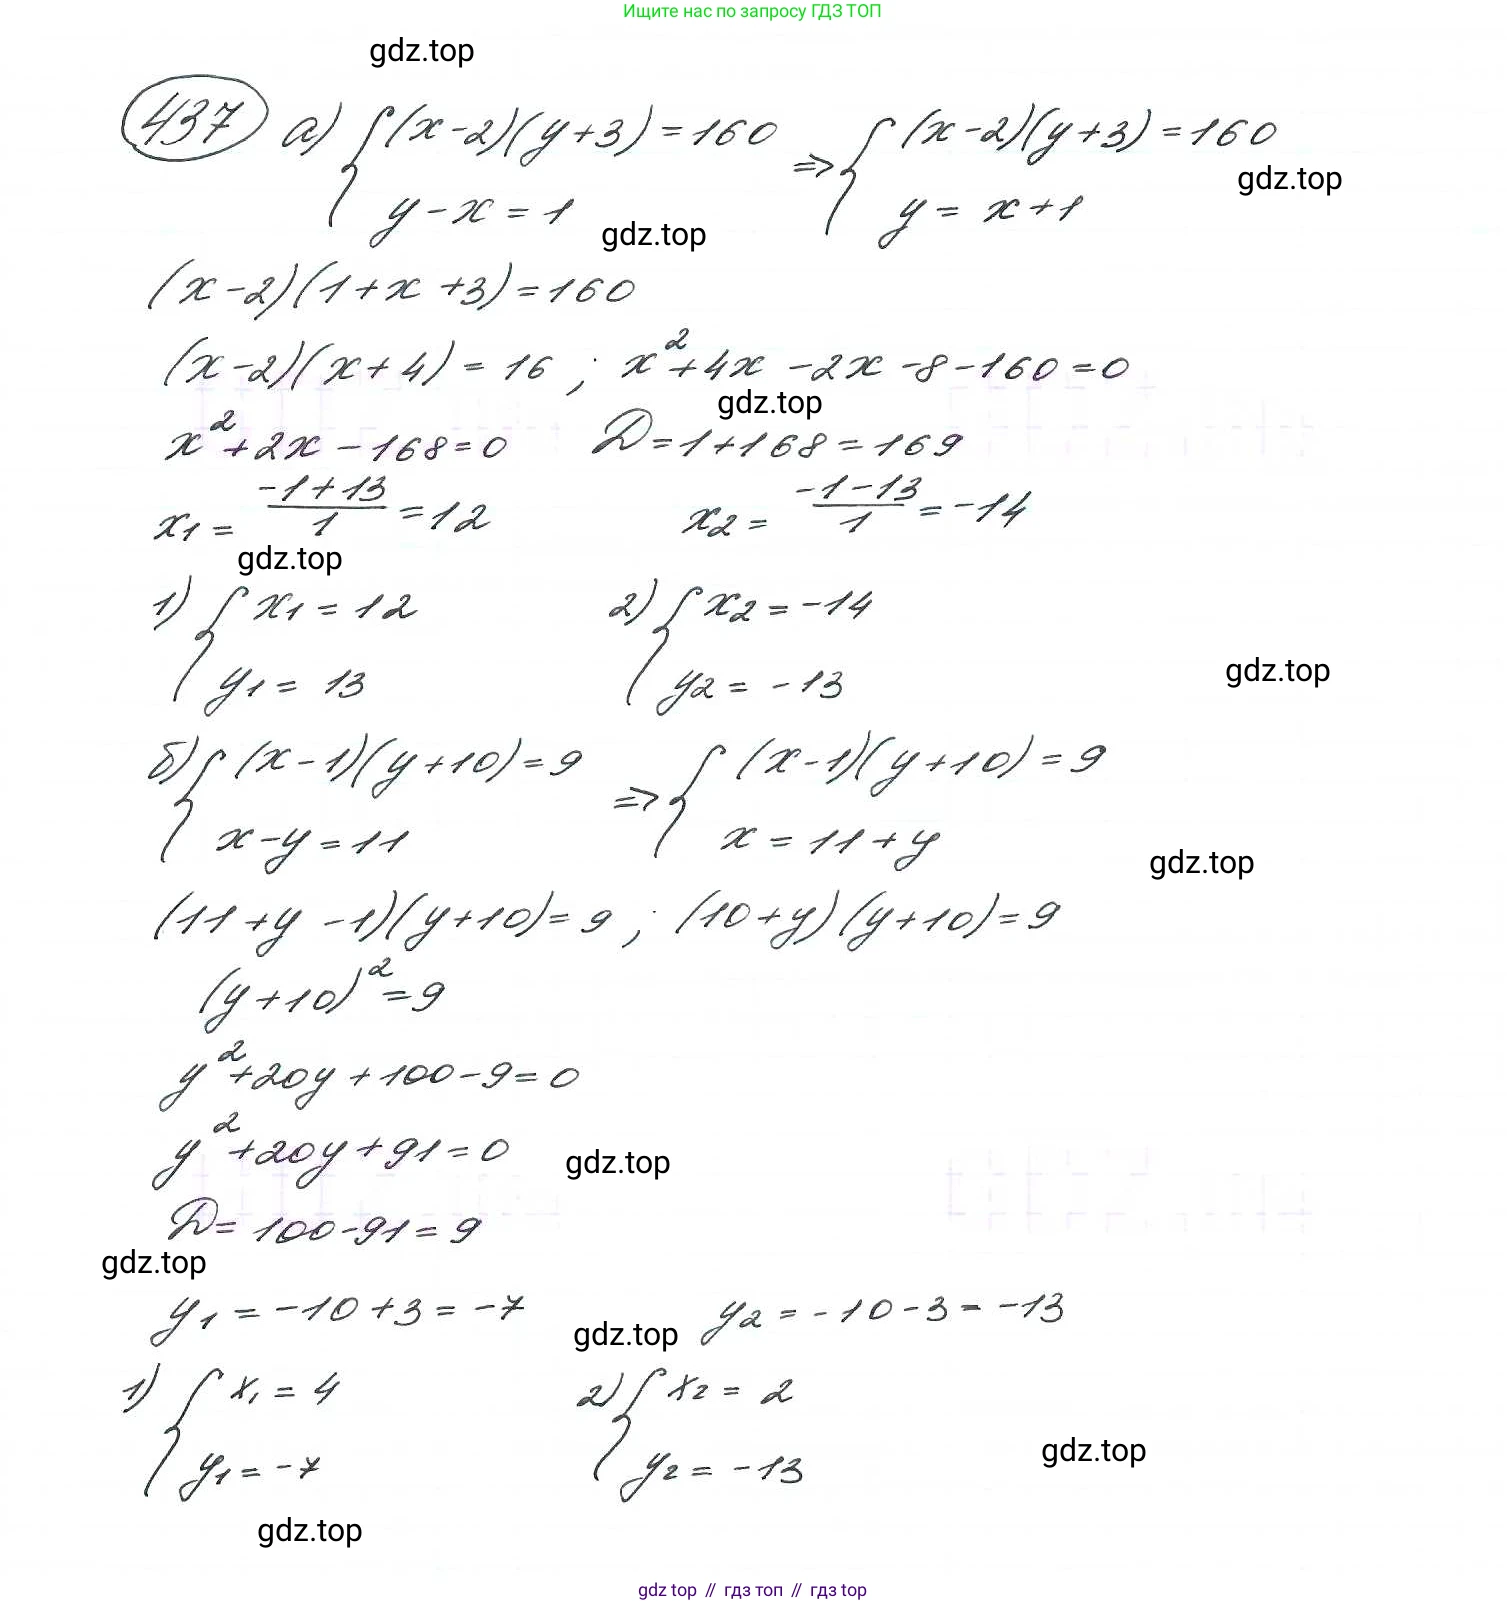 Ищите нас по запросу ГДЗ ТОП
gdz.top
437 а) { (x-2)(y+3)=160 => { (x-2)(y+3)=160
gdz.top
y-x=1 y= x+1
gdz.top
(x-2)(1+x+3)=160
(x-2)(x+4)=16 ; x²+4x-2x-8-160=0
gdz.top
x²+2x-168=0 D=1+168=169
x1= (-1+13)/1 =12 x2= (-1-13)/1 =-14
gdz.top
1) { x1=12 2) { x2=-14
gdz.top
y1= 13 y2= -13
б) { (x-1)(y+10)=9 => { (x-1)(y+10)=9
x-y=11 x=11+y
gdz.top
(11+y-1)(y+10)=9 ; (10+y)(y+10)=9
(y+10)²=9
y²+20y+100-9=0
y²+20y+91=0
gdz.top
D=100-91=9
gdz.top
y1=-10+3=-7 y2=-10-3=-13
gdz.top
1) { x1=4 2) { x2=2
gdz.top
y1=-7 y2=-13
gdz.top
gdz top // гдз топ // гдз top